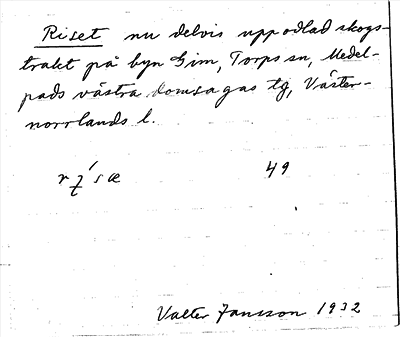 Riset nu delvis uppodlad skogs-
trakt på byn Gim, Torps sn, Medel-
pads västra domsagas tg, Väster-
norrlands l.
49
Valter Jansson 1932